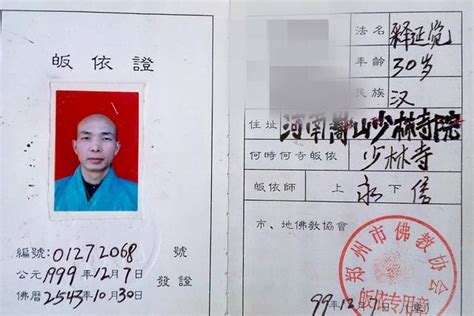 皈依證
編號:01272068號
公元1999年12月7日
發證
佛曆2543年10月30日
法名 释延觉
年齡 30岁
民族 汉
住址 河南嵩山少林寺院
何時何寺皈依 少林寺
皈依師 上永下信
市、地佛教協會
郑州市佛教协会
皈依专用章
99年12月7日